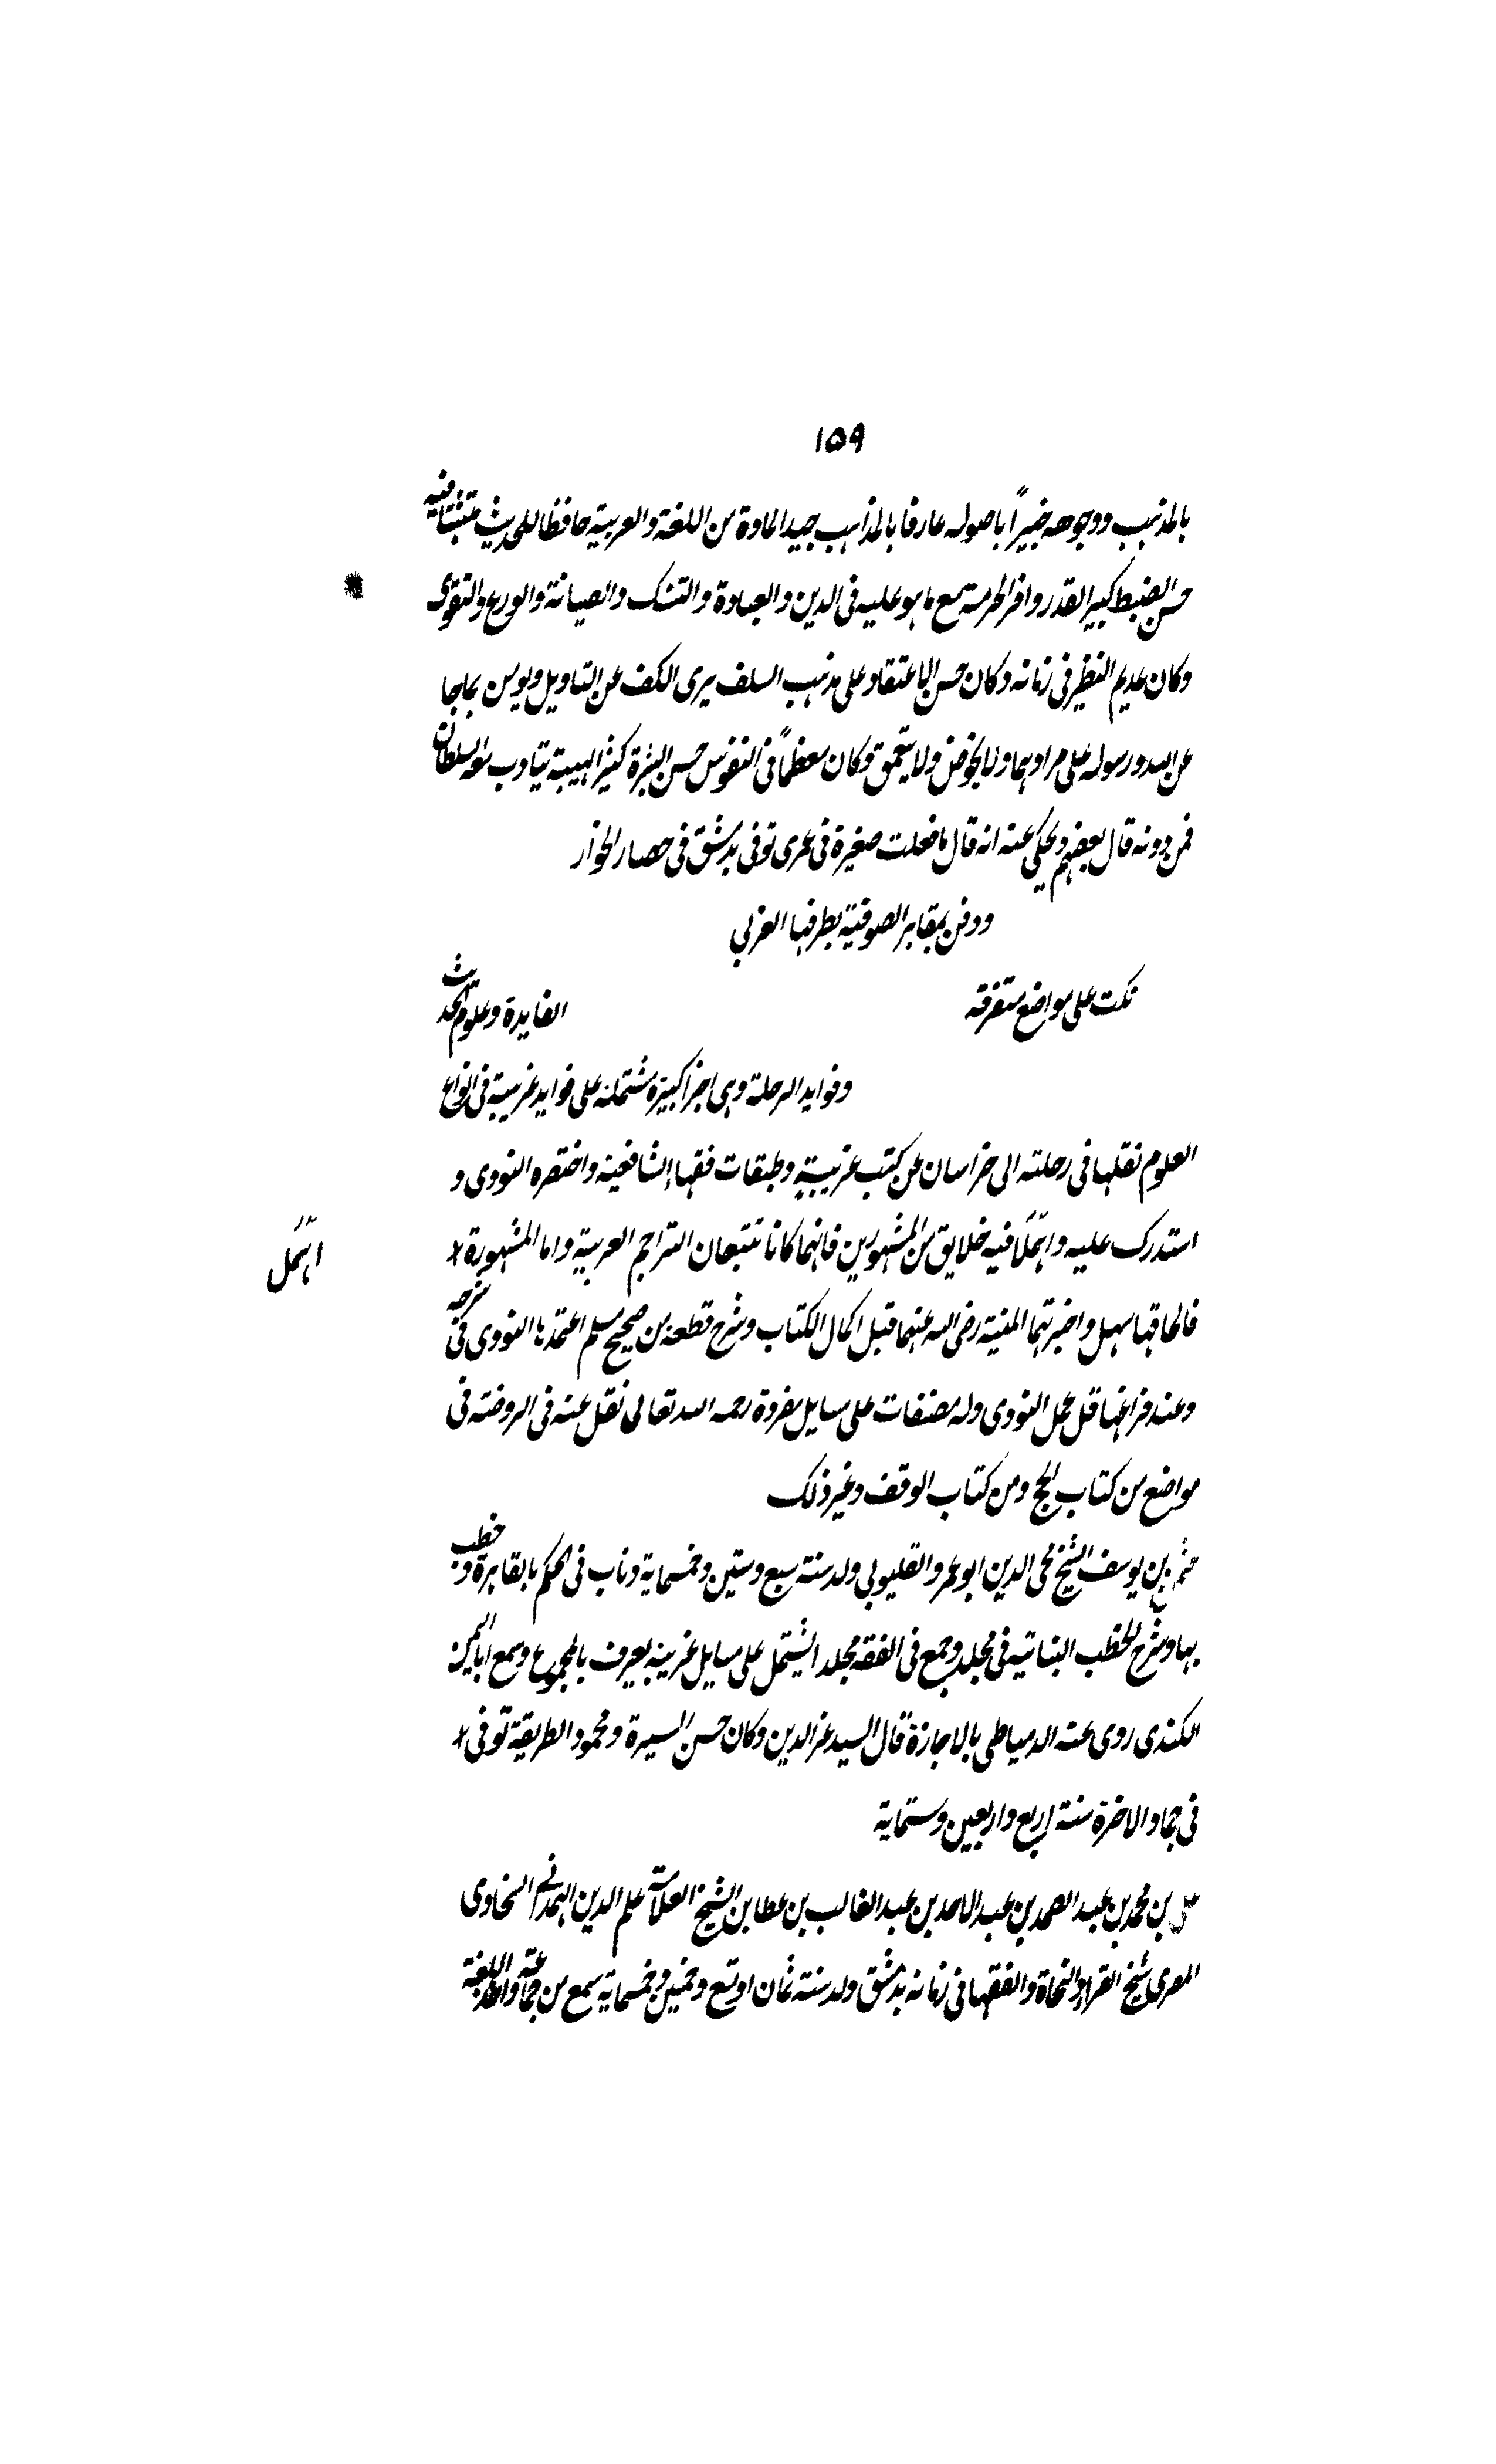 ١٥٩
بالمذهب ووجوهه خبيراً باصوله عارفا بالمذاهب جيد المادة من اللغة والعربية حافظا للحديث متفننا فيه
حسن الضبط كبير القدر وافر الحرمة مع ما هو عليه فى الدين والعبادة والتنسك والصيانة والورع والتقوى
وكان عديم النظير فى زمانه وكان حسن الاعتقاد على مذهب السلف يرى الكف عن التاويل ويومن بماجا
عن الله ورسوله على مرادهما ولا يخوض ولا يتعمق وكان معظماً فى النفوس حسن البزة كثير الهيبة يتادب معه السلطان
فمن دونه قال بعضهم ويحكى عنه انه قال ما فعلت صغيرة فى عمرى توفى بدمشق فى حصار الخوارزمية
ودفن بمقابر الصوفية بطرفها الغربى
نكت على مواضع متفرقه الفايدة وعلوم الحديث
وفوايد الرحلة وهى اجزا كبيرة مشتملة على فوايد غريبة فى انواع
العلوم نقلها فى رحلته الى خراسان عن كتب غريبة وطبقات فقها الشافعية واختصره النووى و
استدرك عليه واهملا فيه خلايق من المشهورين فانهما كانا يتتبعان التراجم الغريبة واما المشهورة
فالحاقها سهل واخترمتهما المنية رضى الله عنهما قبل اكمال الكتاب وشرح قطعة من صحيح مسلم اعتمدها النووى فى شرحه
وعند فراغها قل عمل النووى وله مصنفات على مسايل مفردة رحمه الله تعالى نقل عنه فى الروضة فى
مواضع من كتاب الحج ومن كتاب الوقف وغير ذلك
بن يوسف الشيخ محى الدين ابو عمرو القليوبى ولد سنة سبع وستين وخمسماية وناب فى الحكم بالقاهرة وخطب
بها وشرح الخطب النباتية فى مجلد وجمع فى الفقه مجلدا يشتمل على مسايل غريبة يعرف بالمجموع وسمع ابا اليمن
الكندى روى عنه الدمياطى بالاجازة قال السيد عز الدين وكان حسن السيرة ومحمود الطريقة توفى
فى جماد الاخرة سنة اربع واربعين وستماية
على بن محمد بن عبد الصمد بن عبد الاحد بن عبد الغالب بن عطا بن الشيخ العلامة علم الدين الهمدانى السخاوى
المصرى شيخ القراء والنحاة والفقها فى زمانه بدمشق ولد سنة ثمان او تسع وخمسين وخمسماية سمع من جماعة واللغة
اهمل